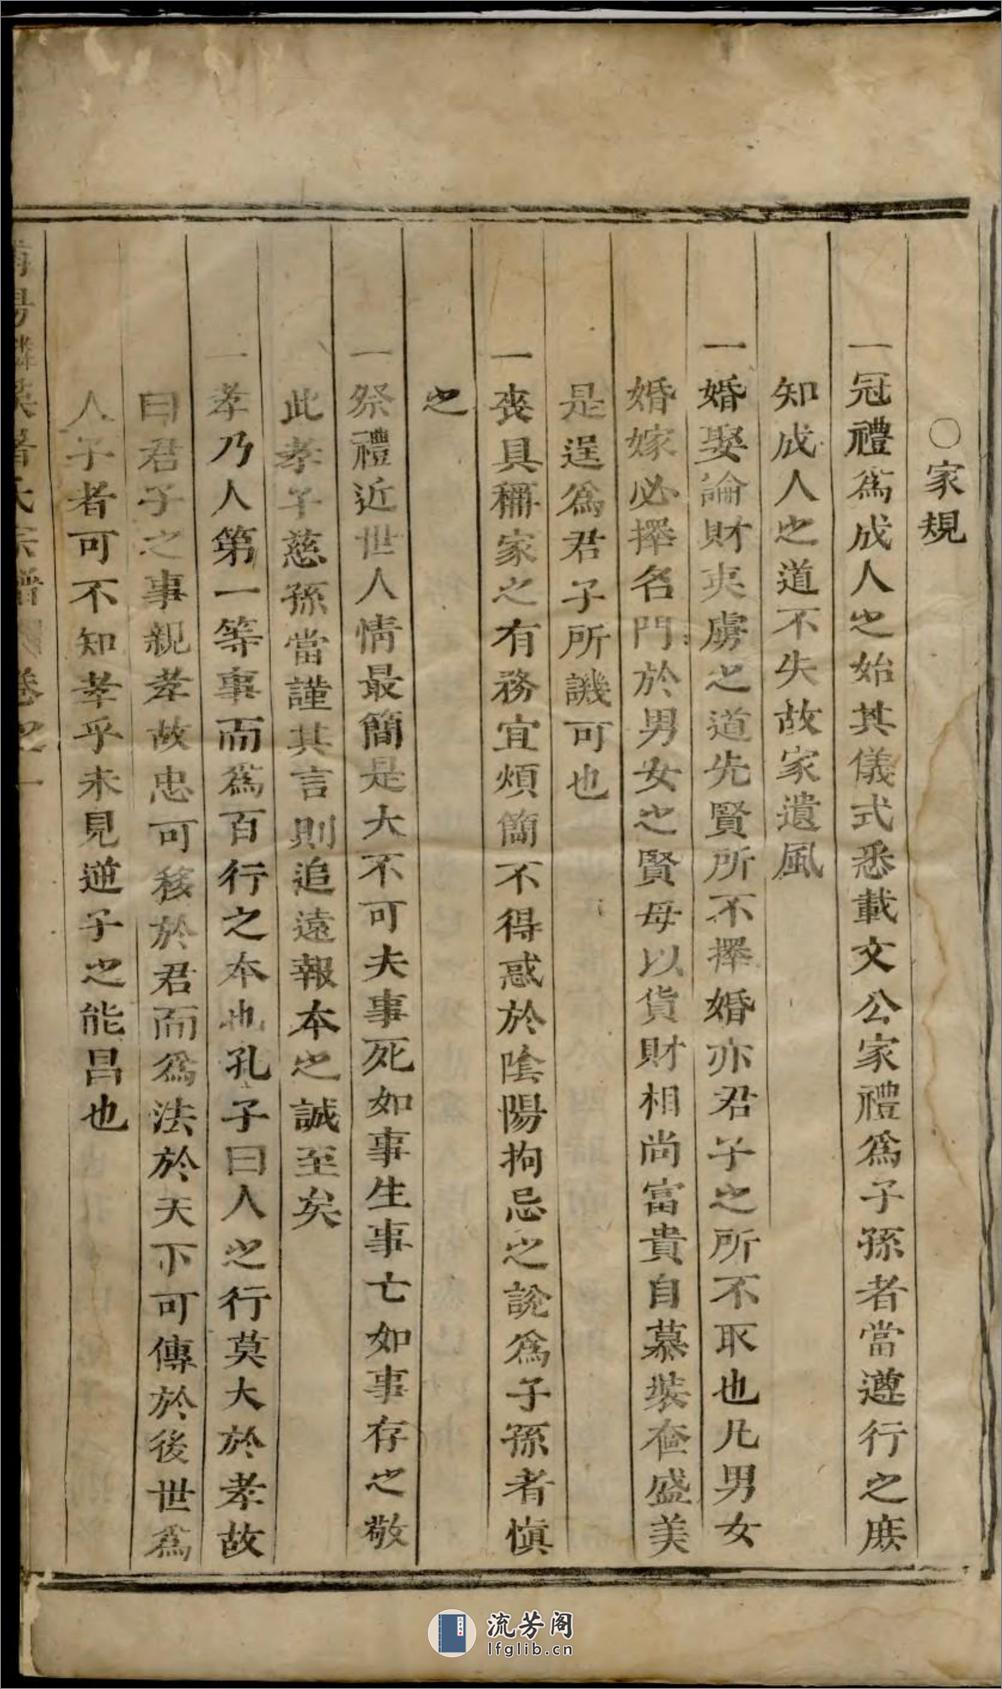 ○家規
一冠禮爲成人之始其儀式悉載文公家禮爲子孫者當遵行之庶
知成人之道不失故家遺風
一婚娶論財夷虜之道先賢所不擇婚亦君子之所不取也凡男女
婚嫁必擇名門於男女之賢毋以貨財相尚富貴自慕裝奩盛美
是逞爲君子所譏可也
一喪具稱家之有務宜煩簡不得惑於陰陽拘忌之說爲子孫者慎
之
一祭禮近世人情最簡是大不可夫事死如事生事亡如事存之敬
此孝子慈孫當謹其言則追遠報本之誠至矣
一孝乃人第一等事而爲百行之本也孔子曰人之行莫大於孝故
曰君子之事親孝故忠可移於君而爲法於天下可傳於後世爲
人子者可不知孝乎未見逆子之能昌也
陽溪氏宗譜卷之一
流芳阁
lfglib.cn